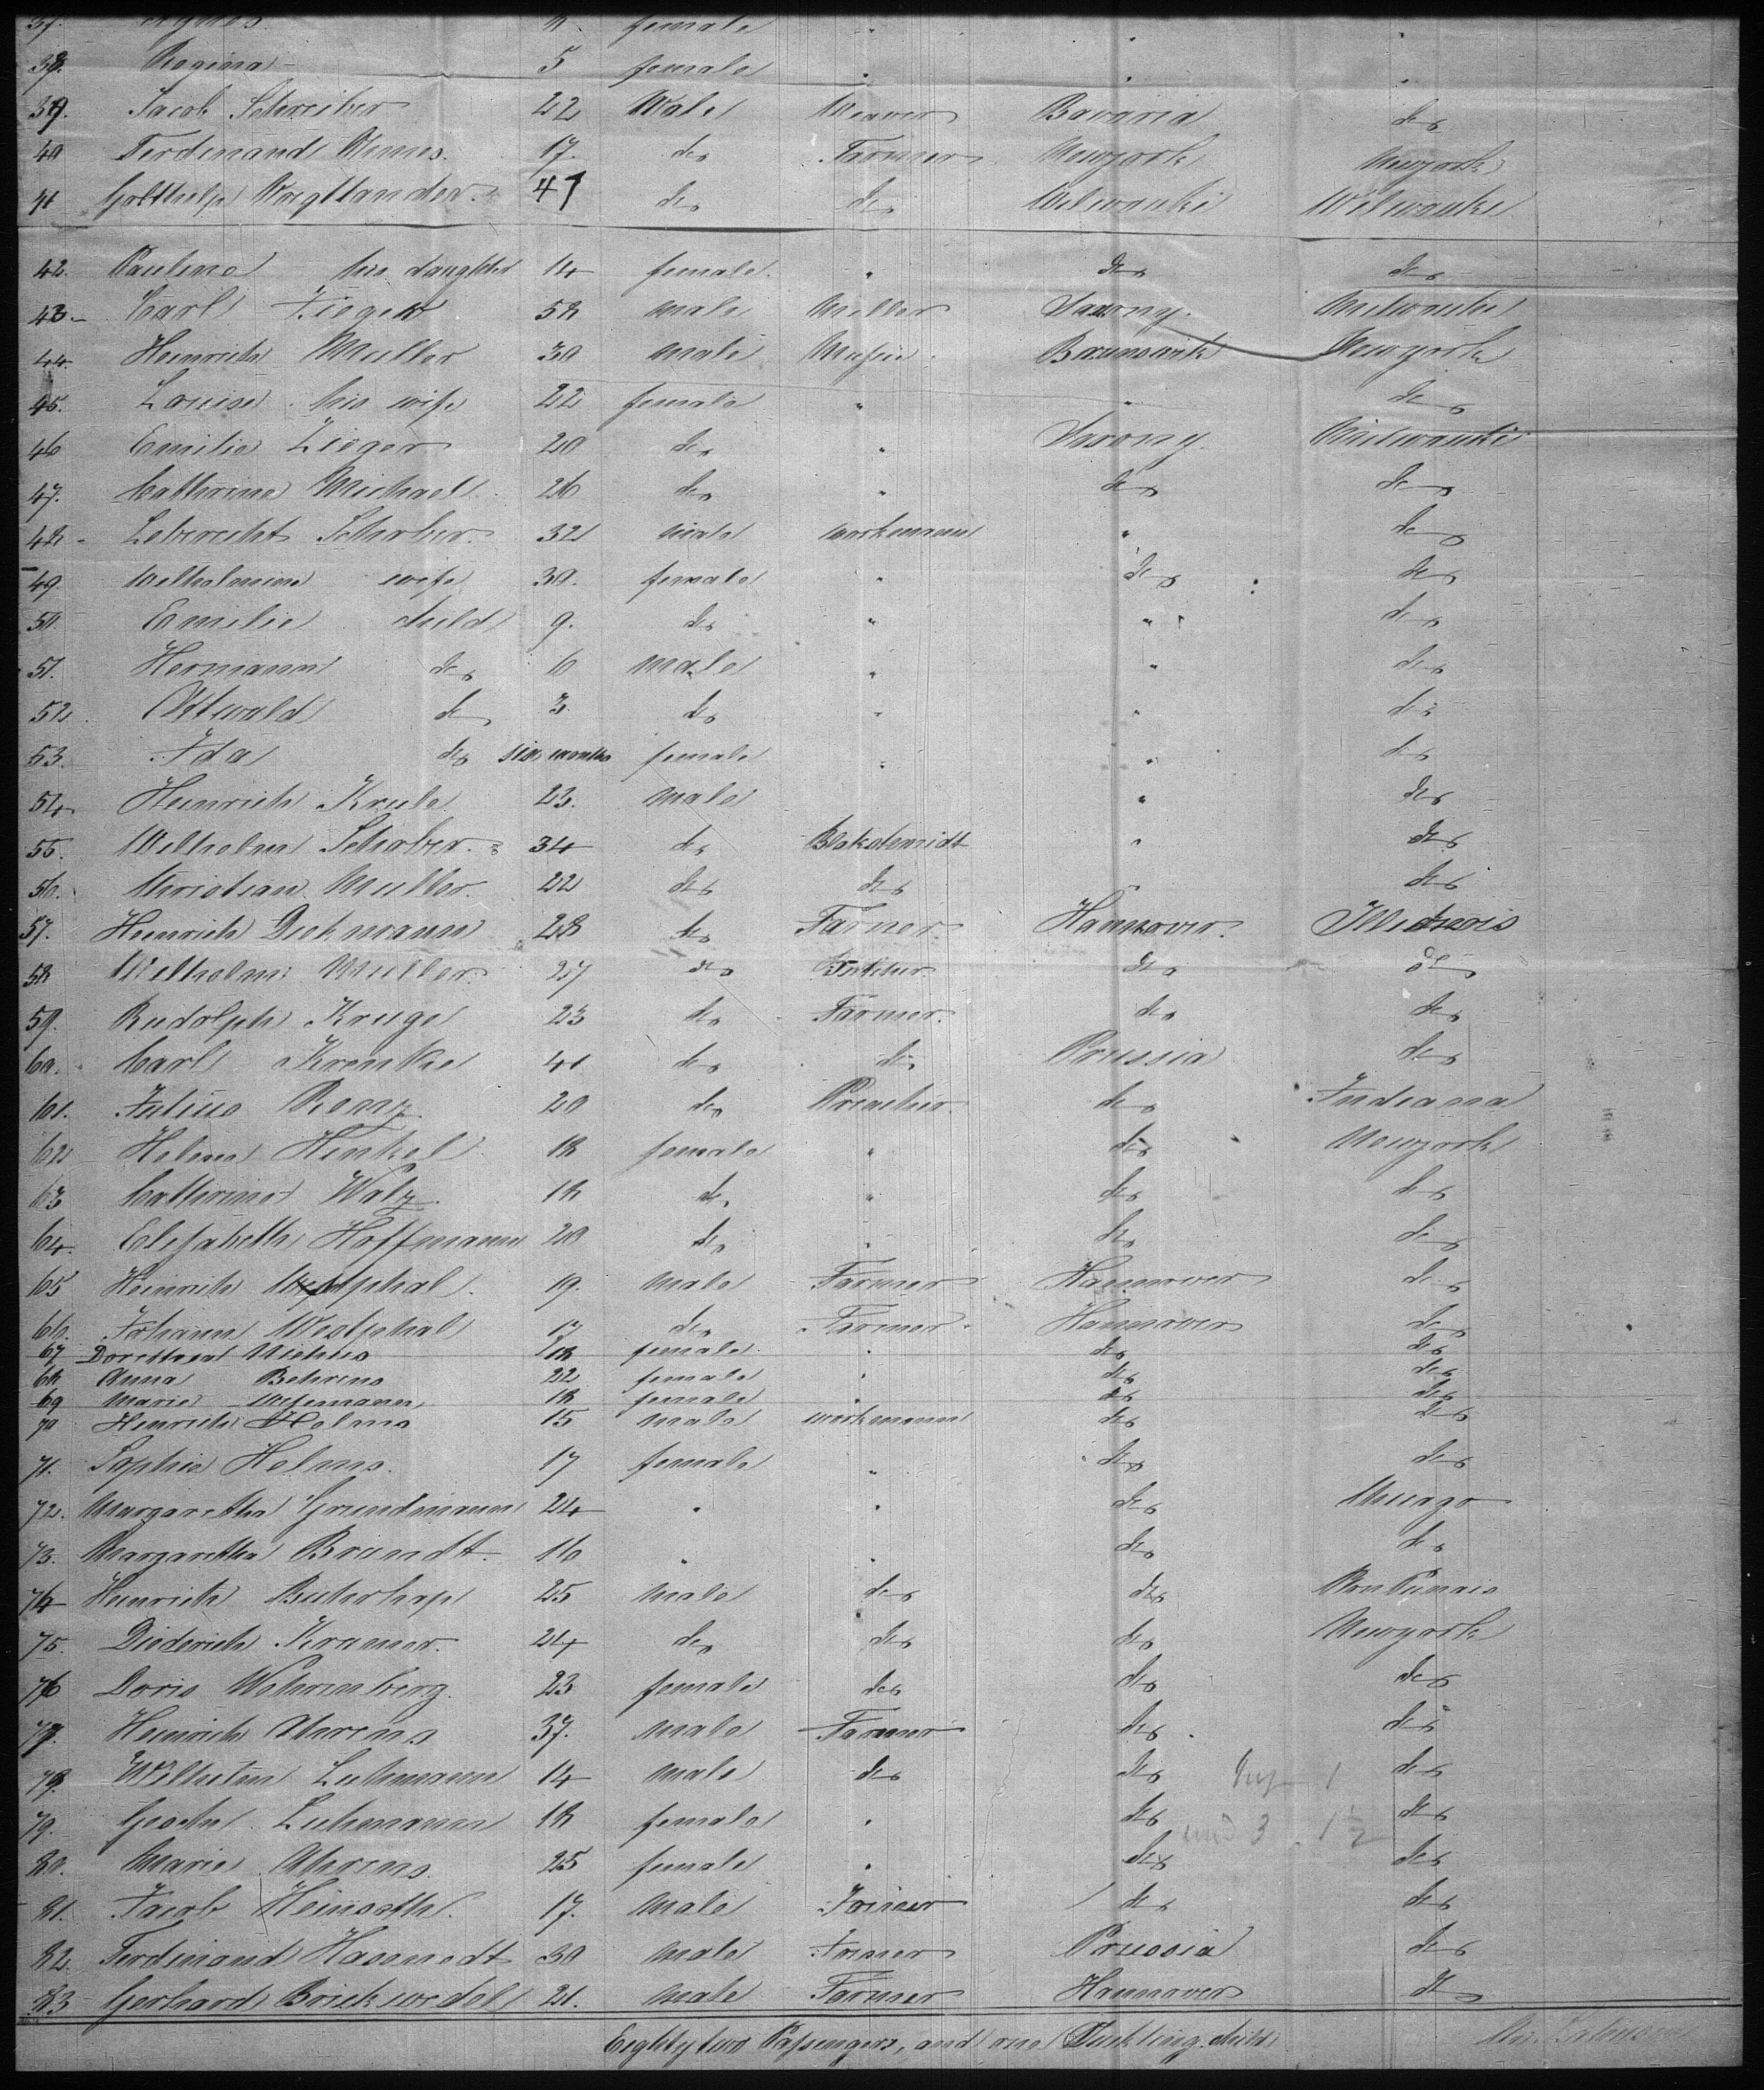 37. Agnes 8 female " " "
38. Regina 5 female " " "
39. Jacob Schreiber 22 Male Weaver Bavaria do
40 Ferdinand 17. do Farmer Newyork Newyork
41 Gotthelf Voigtlander 41 do do Milwauki Milwauke
42. Pauline his daughter 14 female " do do
43. Carl Zieger 58 male Miller Saxony. Milwauke
44. Heinrich Muller 30 male Brunswik Newyork
45. Louise his wife 22 female " " do
46 Emilie Zieger 20 do " Saxony Milwauki
47. Cathrine Michael 26 do " do do
48 Lebrecht Schober 32 male workmann " do
49. Wilhelmine wife 30. female " do do
50. Emilie child 9. do " " do
51. Hermann do 6 male " " do
52. Ottwald do 3 do " " do
53. Ida do six months female " " do
54. Heinrich Krule 23. male " do
55. Wilhelm Schober 34 do Blakschmidt " do
56. Christian Muller. 22 do do " do
57. Heinrich Dickmann 28 do Farner. Hannover. Illenois
58 Wilhelm Muller 27 do do do
59. Rudolph Kruge 23 do Farmer. do do
60. Carl Krenkie 41 do do Prussia do
61. Julius Renz 20 do do Indiana
62 Helena Henkel 18 female " do Newyork
63 Catherine Walz 18 do " do do
64. Elisabeth Hoffmann 20 do " do do
65 Heinrich Westphal. 19. male Farmer Hannover do
66. Johann Westphal 17 do Farmer Hannover do
67 Dorethea 18 female " do do
68 Anna Behrens 22 female " do do
69 Marie 18 female " do do
70 Heinrich Helms 15 male workmann do do
71. Sophie Helms. 17 female " do do
72. Margaretha Grundmann 24 " " do Chicago
73. Margaretha Brandt. 16 " " do do
74 Heinrich 25 male do do
75. Diederich Kramer. 24 do do do Newyork
76 Doris Wehrenberg. 23 female do do do
77. Heinrich Ahrens 37. male Farmer do do
78. Wilhelm Luhmann 14 male do do do
79. Gesche Luhmann 18 female " do do
80. Marie Ahrens. 25 female " do do
81. Jacob Heinsoth. 17. male do do
82. Ferdinand Hassnodt 30 male Prussia do
83 Gerhard Brickwedel 21. male Farmer Hannover do
Eighty two Passengers, and one Suckling child